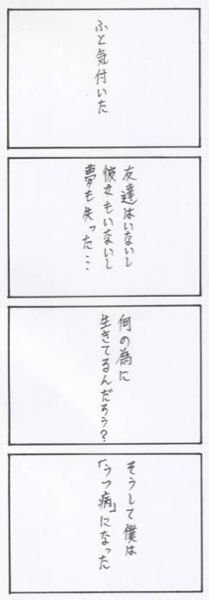 ふと気付いた
友達はいないし
彼女もいないし
夢も失った…
何の為に
生きてるんだろう?
そうして僕は
「うつ病」になった